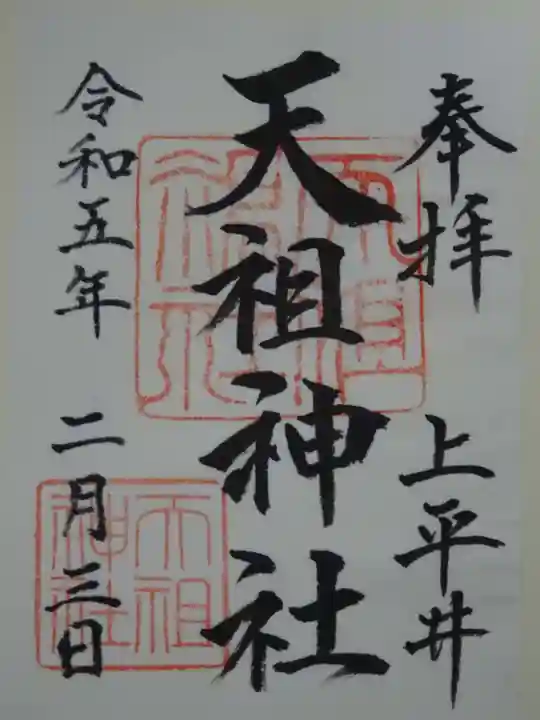 奉拝 上平井
天祖神社
令和五年 二月三日
天祖神社
天祖神社